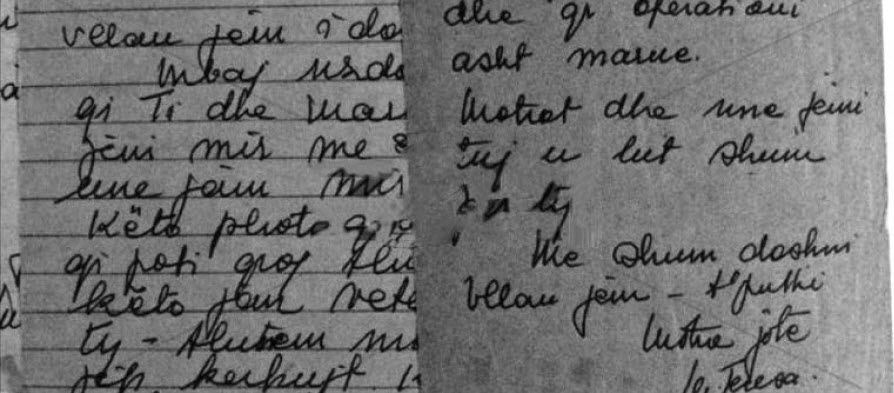 vëllau jëm i da
Mbaj
qi Ti dhe Mar
jëni mir me
une jam mir
Këto photo
qi poti qoj tlu
këto jam vetë
ty - tlutem
jap kerkujt
dhe qi operationi
asht marue.
Motrat dhe une jemi
tuj u lut shum
ty
Me shum dashni
Vëllau jëm - t'puthi
Motra jote
Teresa.